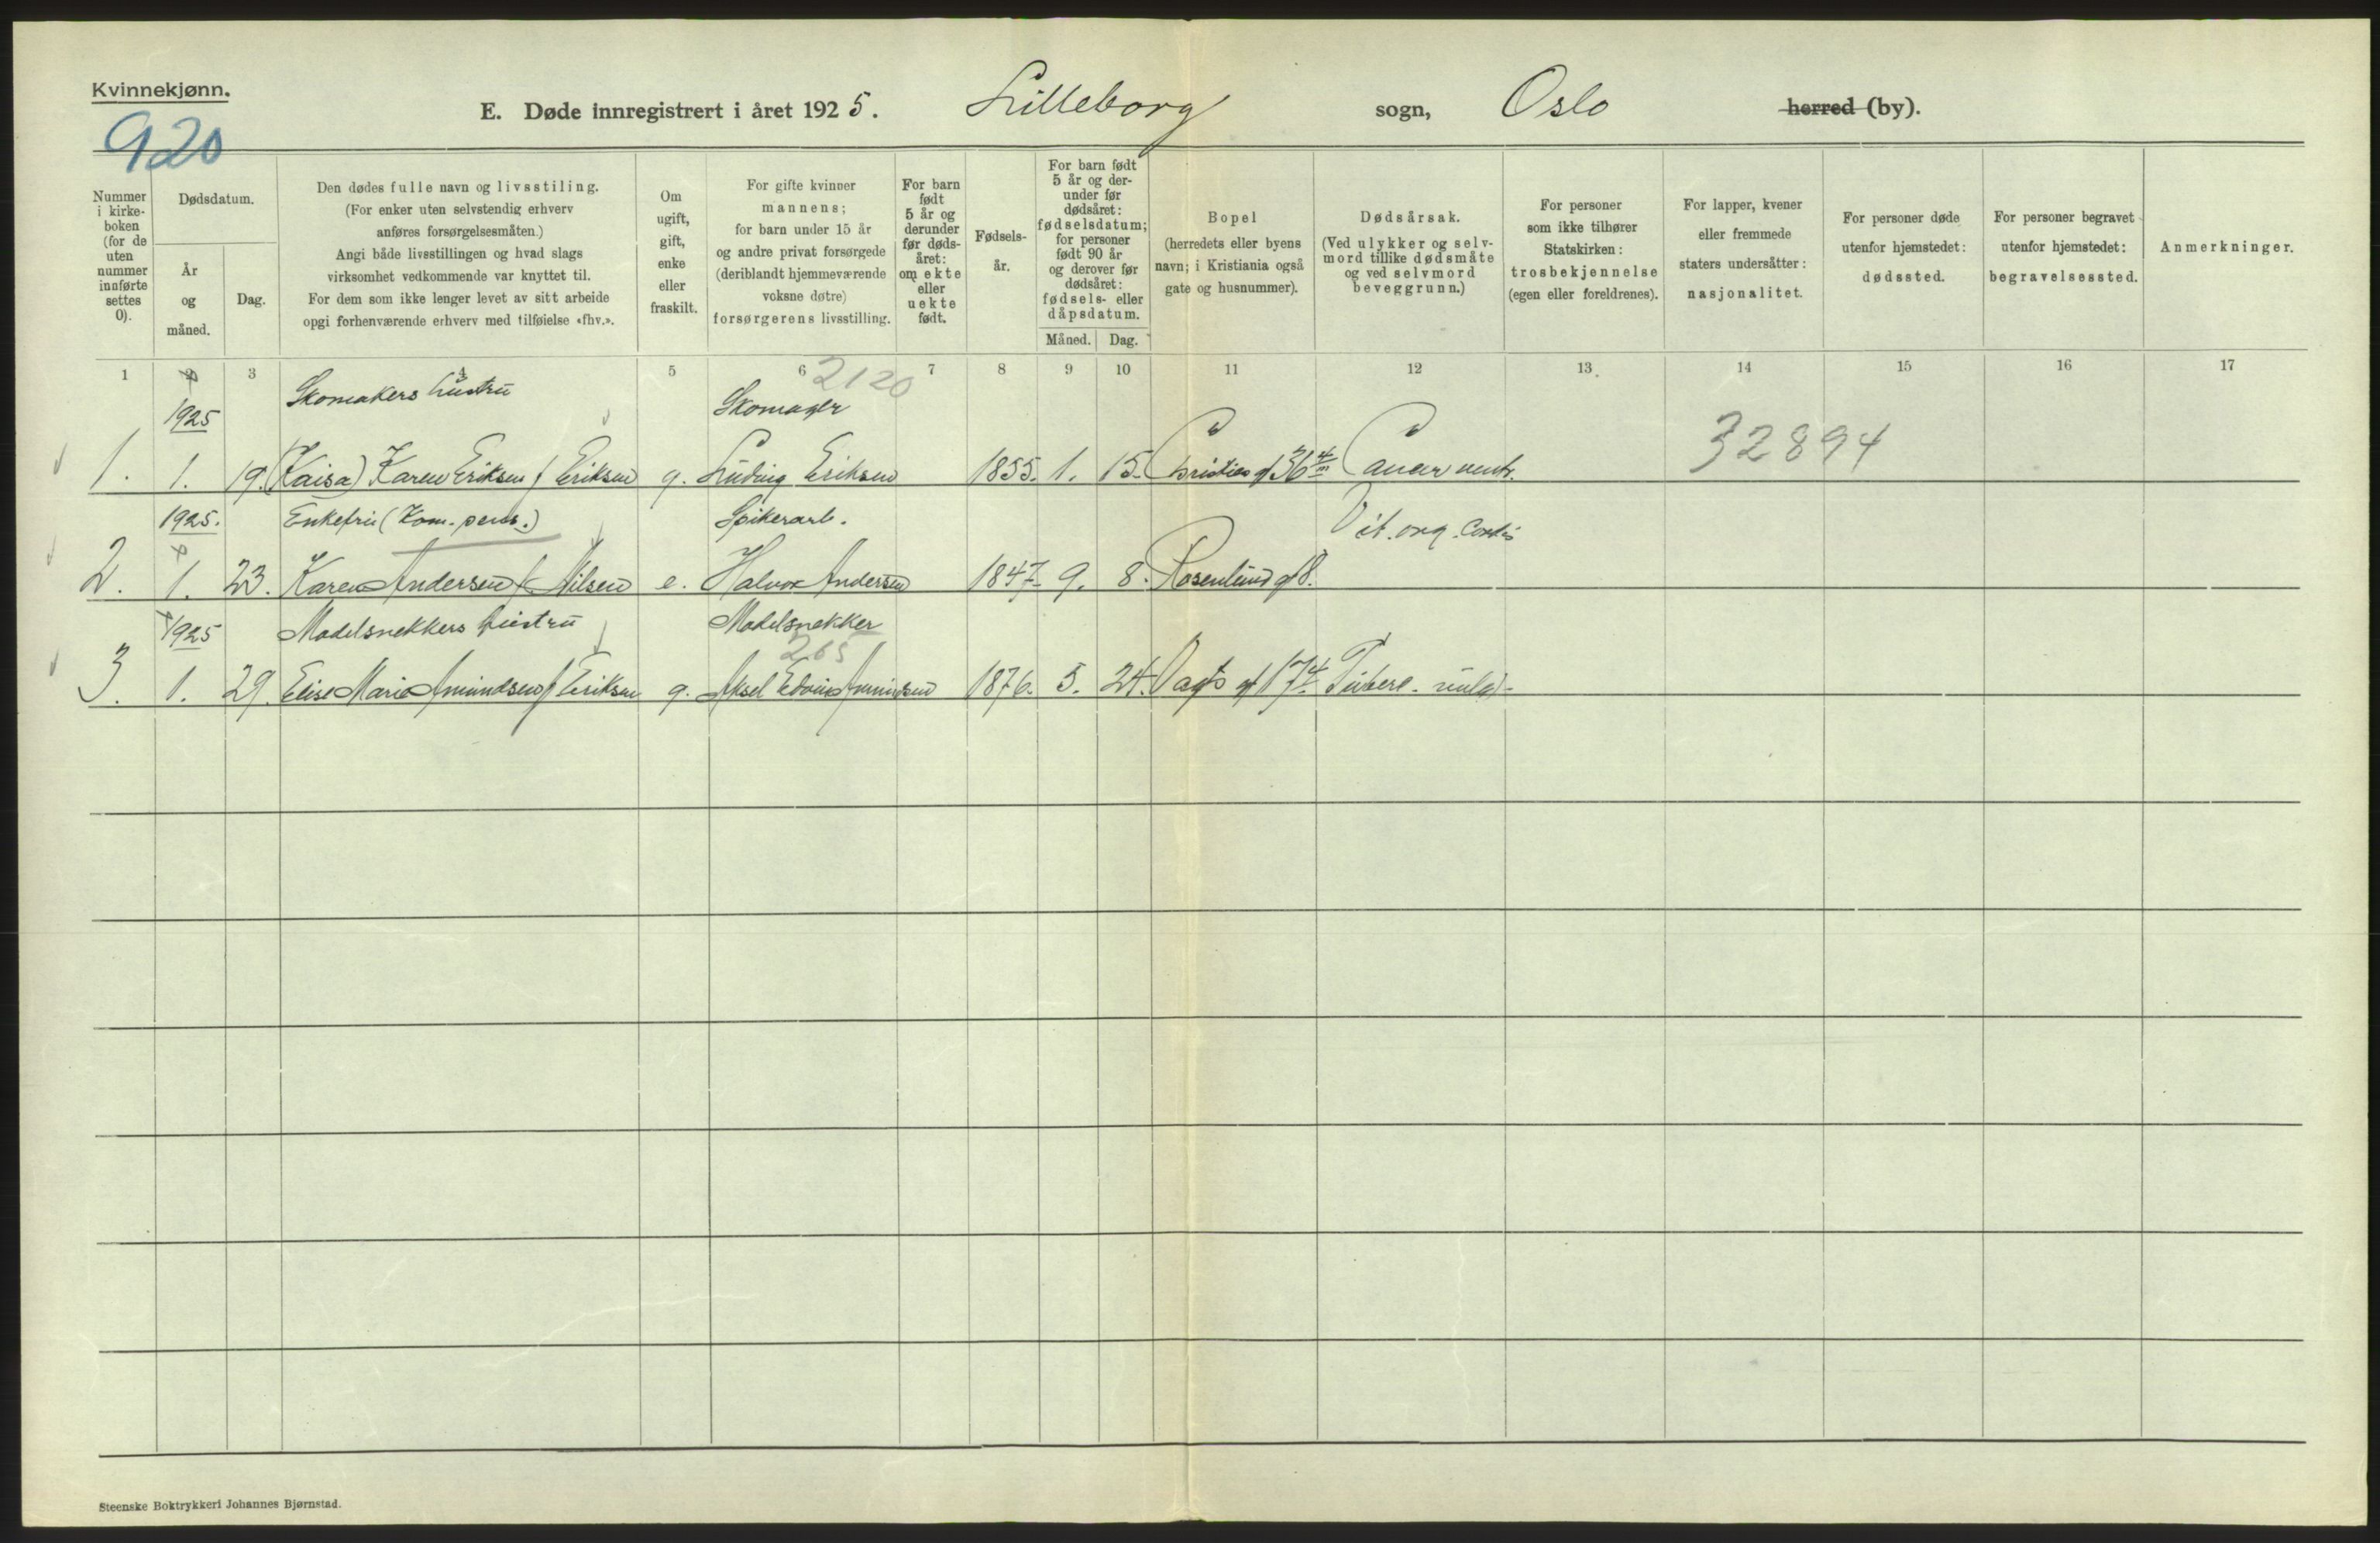 Kvinnekjønn.
920
E. Døde innregistrert i året 1925. Lilleborg sogn, Oslo herred (by).
Nummer i kirke- boken (for de uten nummer innførte settes 0).
Dødsdatum.
År og måned.
Dag.
Den dødes fulle navn og livsstiling.
(For enker uten selvstendig erhverv
anføres forsørgelsesmåten.)
Angi både livsstillingen og hvad slags
virksomhet vedkommende var knyttet til.
For dem som ikke lenger levet av sitt arbeide
opgi forhenværende erhverv med tilføielse «fhv.».
Om ugift, gift, enke eller fraskilt.
For gifte kvinner
mannens;
for barn under 15 år
og andre privat forsørgede
(deriblandt hjemmeværende
voksne døtre)
forsørgerens livsstilling.
For barn født 5 år og derunder før døds- året: om ekte eller uekte født.
Fødsels- år.
For barn født 5 år og der- under før dødsåret: fødselsdatum; for personer født 90 år og derover før dødsåret: fødsels- eller dåpsdatum.
Måned. Dag.
Bopel
(herredets eller byens
navn; i Kristiania også
gate og husnummer).
Dødsårsak.
(Ved ulykker og selv-
mord tillike dødsmåte
og ved selvmord
beveggrunn.)
For personer
som ikke tilhører
Statskirken:
trosbekjennelse
(egen eller foreldrenes).
For lapper, kvener
eller fremmede
staters undersåtter:
nasjonalitet.
For personer døde
utenfor hjemstedet:
dødssted.
For personer begravet
utenfor hjemstedet:
begravelsessted.
Anmerkninger.
1 2 3 4 5 6 7 8 9 10 11 12 13 14 15 16 17
2120
1925 Skomakers hustru Skomager
1. 1. 19. (Kaisa) Karen Eriksen f. Eriksen g. Ludvig Eriksen 1855. 1. 15. Christies gt 36 Cancer ventr. 32894
1925. Enkefru (Kom. pens.) Spikerarb. Vit. org. Cordis
2. 1. 23. Karen Andersen f. Nilsen e. Halvor Andersen 1847. 9. 8. Rosenlund gt 8.
1925 Modelsnekkers hustru Modelsnekker
265
3. 1. 29. Elise Marie Amundsen f. Eriksen g. Aksel Edvin Amundsen 1876. 5. 24. Vogts gt 17
Steenske Boktrykkeri Johannes Bjørnstad.